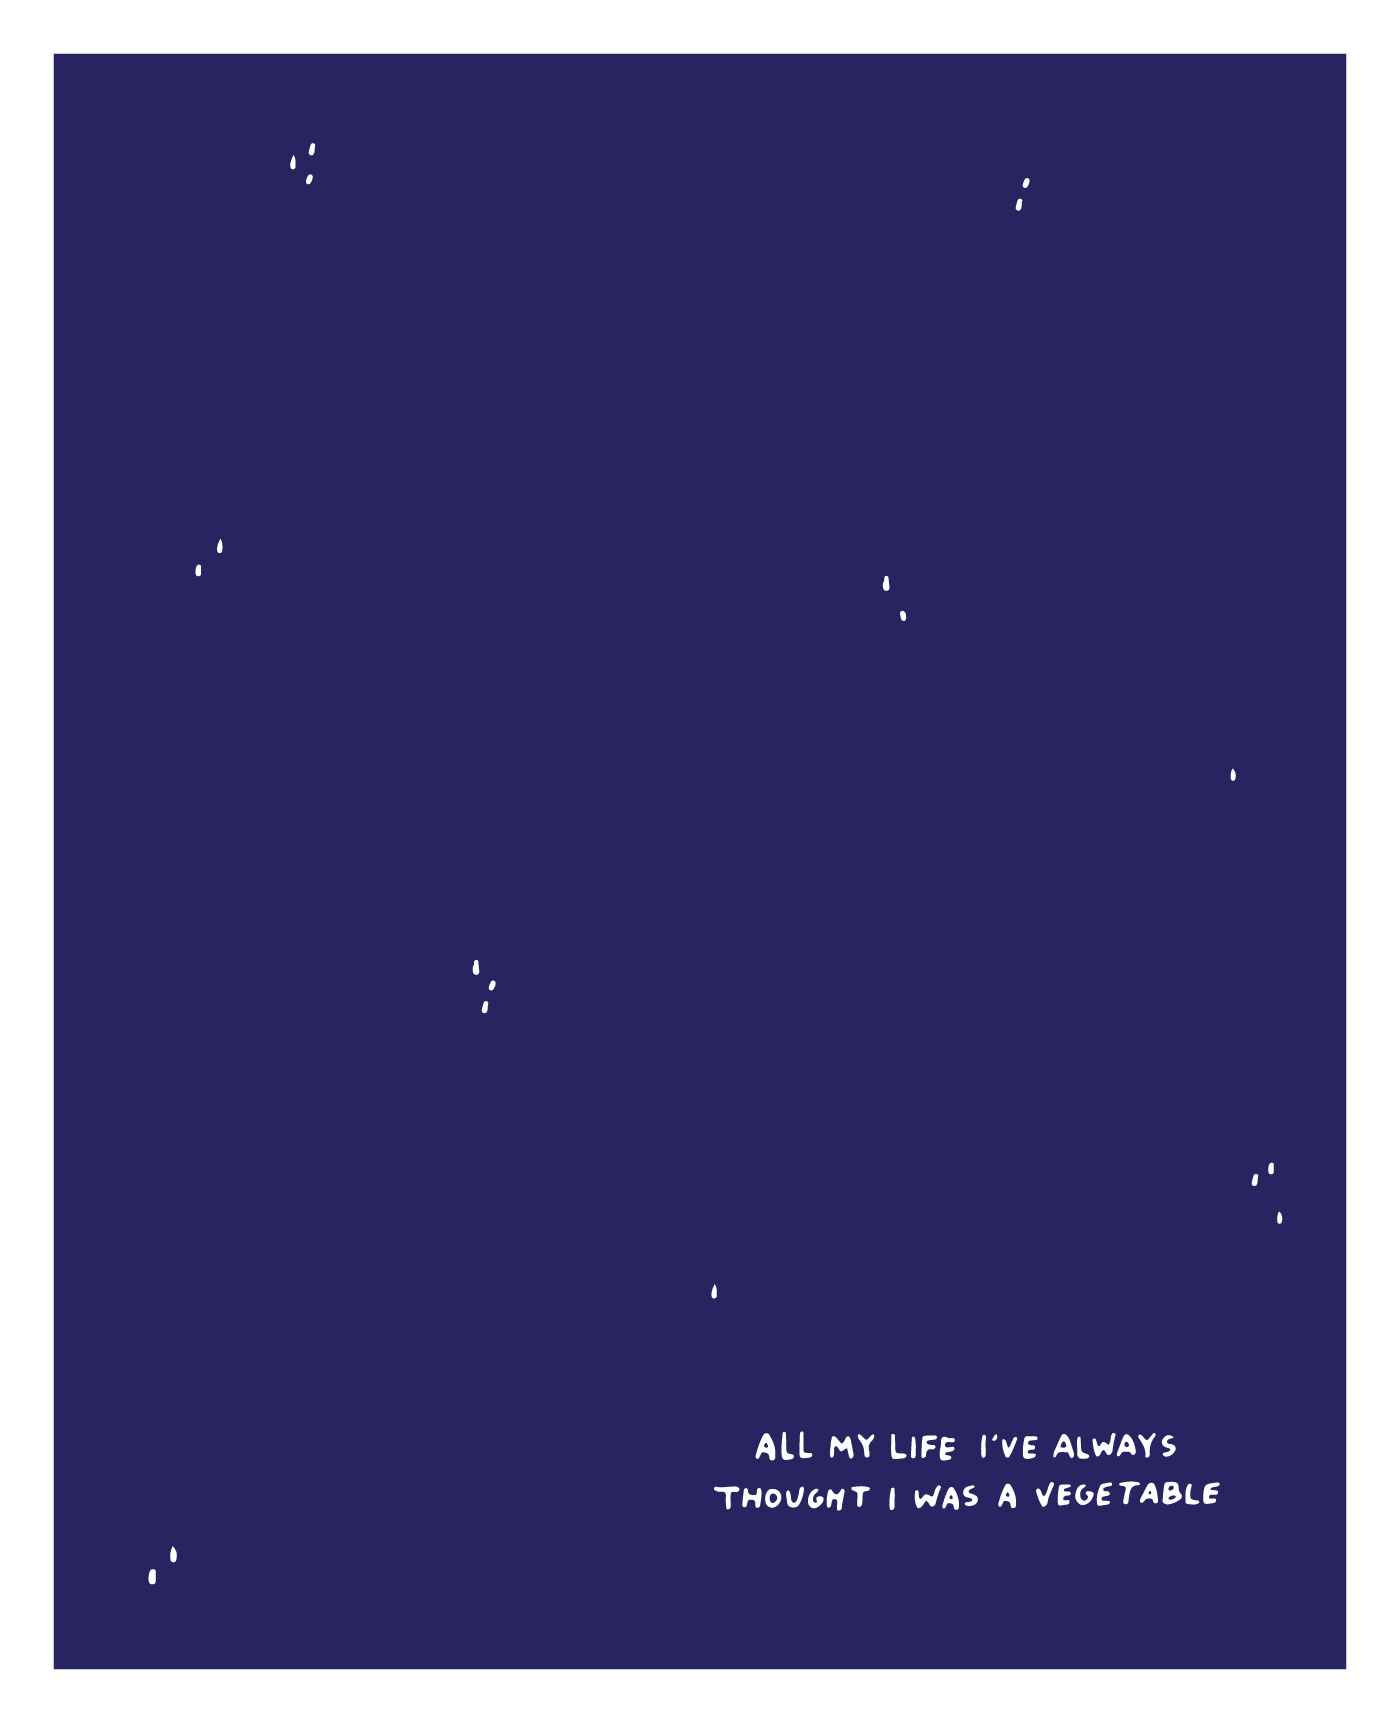 ALL MY LIFE I'VE ALWAYS
THOUGHT I WAS A VEGETABLE